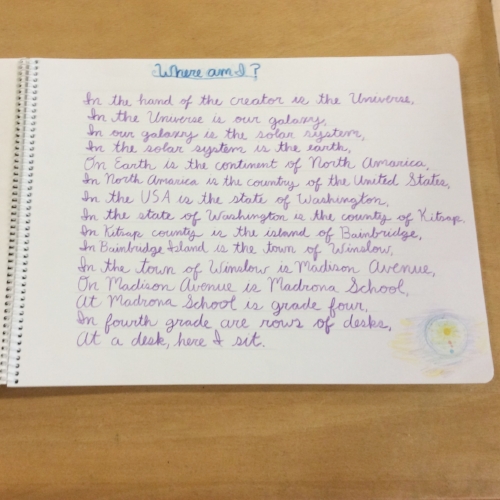 Where am I?
In the hand of the creator is the Universe,
In the Universe is our galaxy,
In our galaxy is the solar system,
In the solar system is the earth,
On Earth is the continent of North Amarica,
In North Amarica is the country of the United States,
In the USA is the state of Washington,
In the state of Washington is the county of Kitsap,
In Kitsap county is the island of Bainbridge,
In Bainbridge Island is the town of Winslow,
In the town of Winslow is Madison Avenue,
On Madison Avenue is Madrona School,
At Madrona School is grade four,
In fourth grade are rows of desks,
At a desk, here I sit.